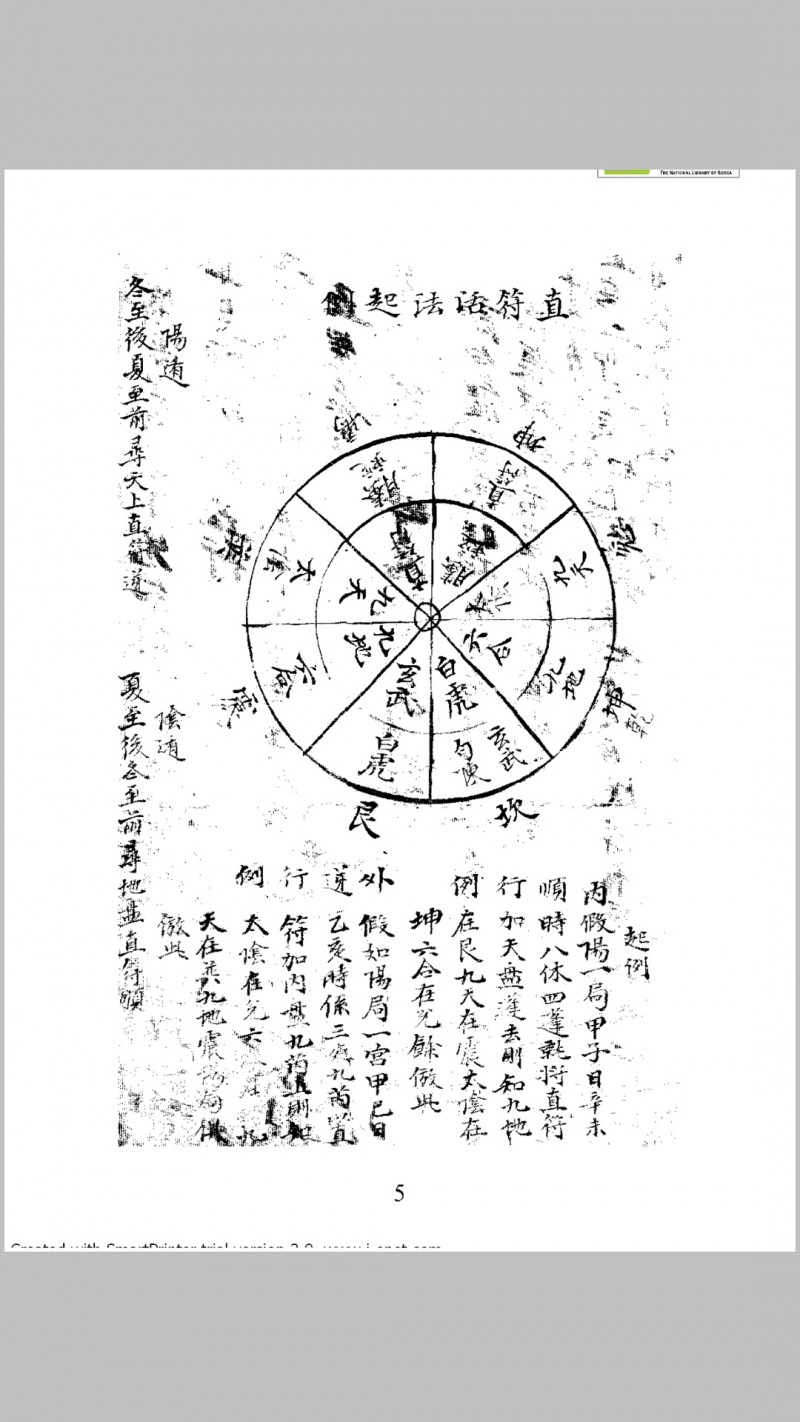 THE NATIONAL LIBRARY OF KOREA
直符活法起例
坤
直符
騰
九天
九地
太陰
六合
白虎
玄武
勾陳
玄武
白虎
直符
九天
九地
太陰
六合
乾
坎
艮
起例
內假陽一局甲子日辛未
順時八休四蓬就將直符
行加天盤蓬去則知九地
例在艮九天在震太陰在
坤六合在兌餘倣此
外假如陽局一宮甲己日
逆乙亥時係三
行符加內盤九芮上則知
例太陰在兌六
天在巽九地震
倣此
陽遁
冬至後夏至前尋天上直符逆
陰遁
夏至後冬至前尋地盤直符順
5